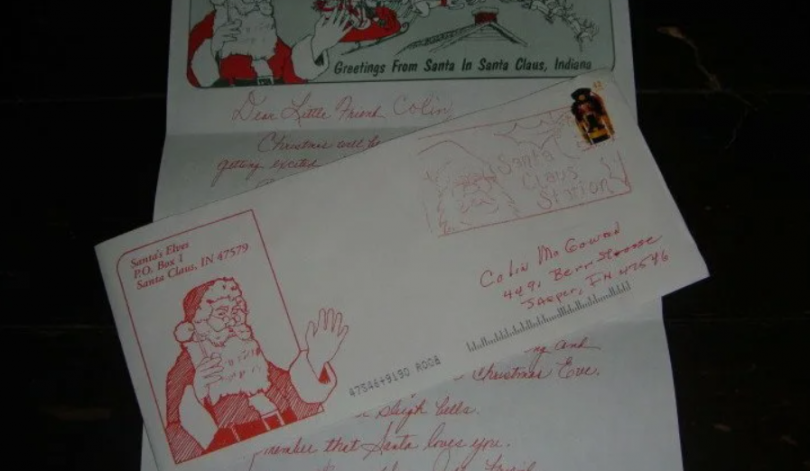 Greetings From Santa In Santa Claus, Indiana
Dear Little Friend Colin
Christmas will be
getting excited
Santa
Claus
Station
Santa's Elves
P.O. Box 1
Santa Claus, IN 47579
Colin McGowan
Jasper, IN 47546
47546+9130 R008
and
Christmas Eve.
sleigh bells.
member that Santa loves you.